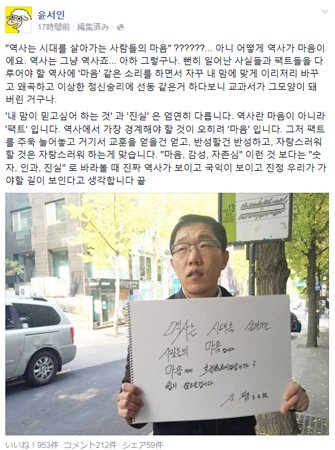 윤서인
17時間前・編集済み・
"역사는 시대를 살아가는 사람들의 마음" ??????... 아니 어떻게 역사가 마음이
에요. 역사는 그냥 역사죠... 아하 그렇구나. 뻔히 일어난 사실들과 팩트들을 다
루어야 할 역사에 '마음' 같은 소리를 하면서 자꾸 내 맘에 맞게 이리저리 바꾸
고 왜곡하고 이상한 정신승리에 선동 같은거 하다보니 교과서가 그모양이 돼
버린 거구나.
'내 맘이 믿고싶어 하는 것' 과 '진실' 은 엄연히 다릅니다. 역사란 마음이 아니라
'팩트' 입니다. 역사에서 가장 경계해야 할 것이 오히려 '마음' 입니다. 그저 팩트
를 주욱 늘어놓고 거기서 교훈을 얻을건 얻고, 반성할건 반성하고, 자랑스러워
할 것은 자랑스러워 하는게 맞습니다. "마음, 감성, 자존심" 이런 것 보다는 "숫
자, 인과, 진실" 로 바라볼 때 진짜 역사가 보이고 국익이 보이고 진정 우리가 가
야할 길이 보인다고 생각합니다 끝
역사는 시대를 살아가는
사람들의 마음입니다.
마음까지
쉽지 않으실겁니다
いいね！953件 コメント212件 シェア59件